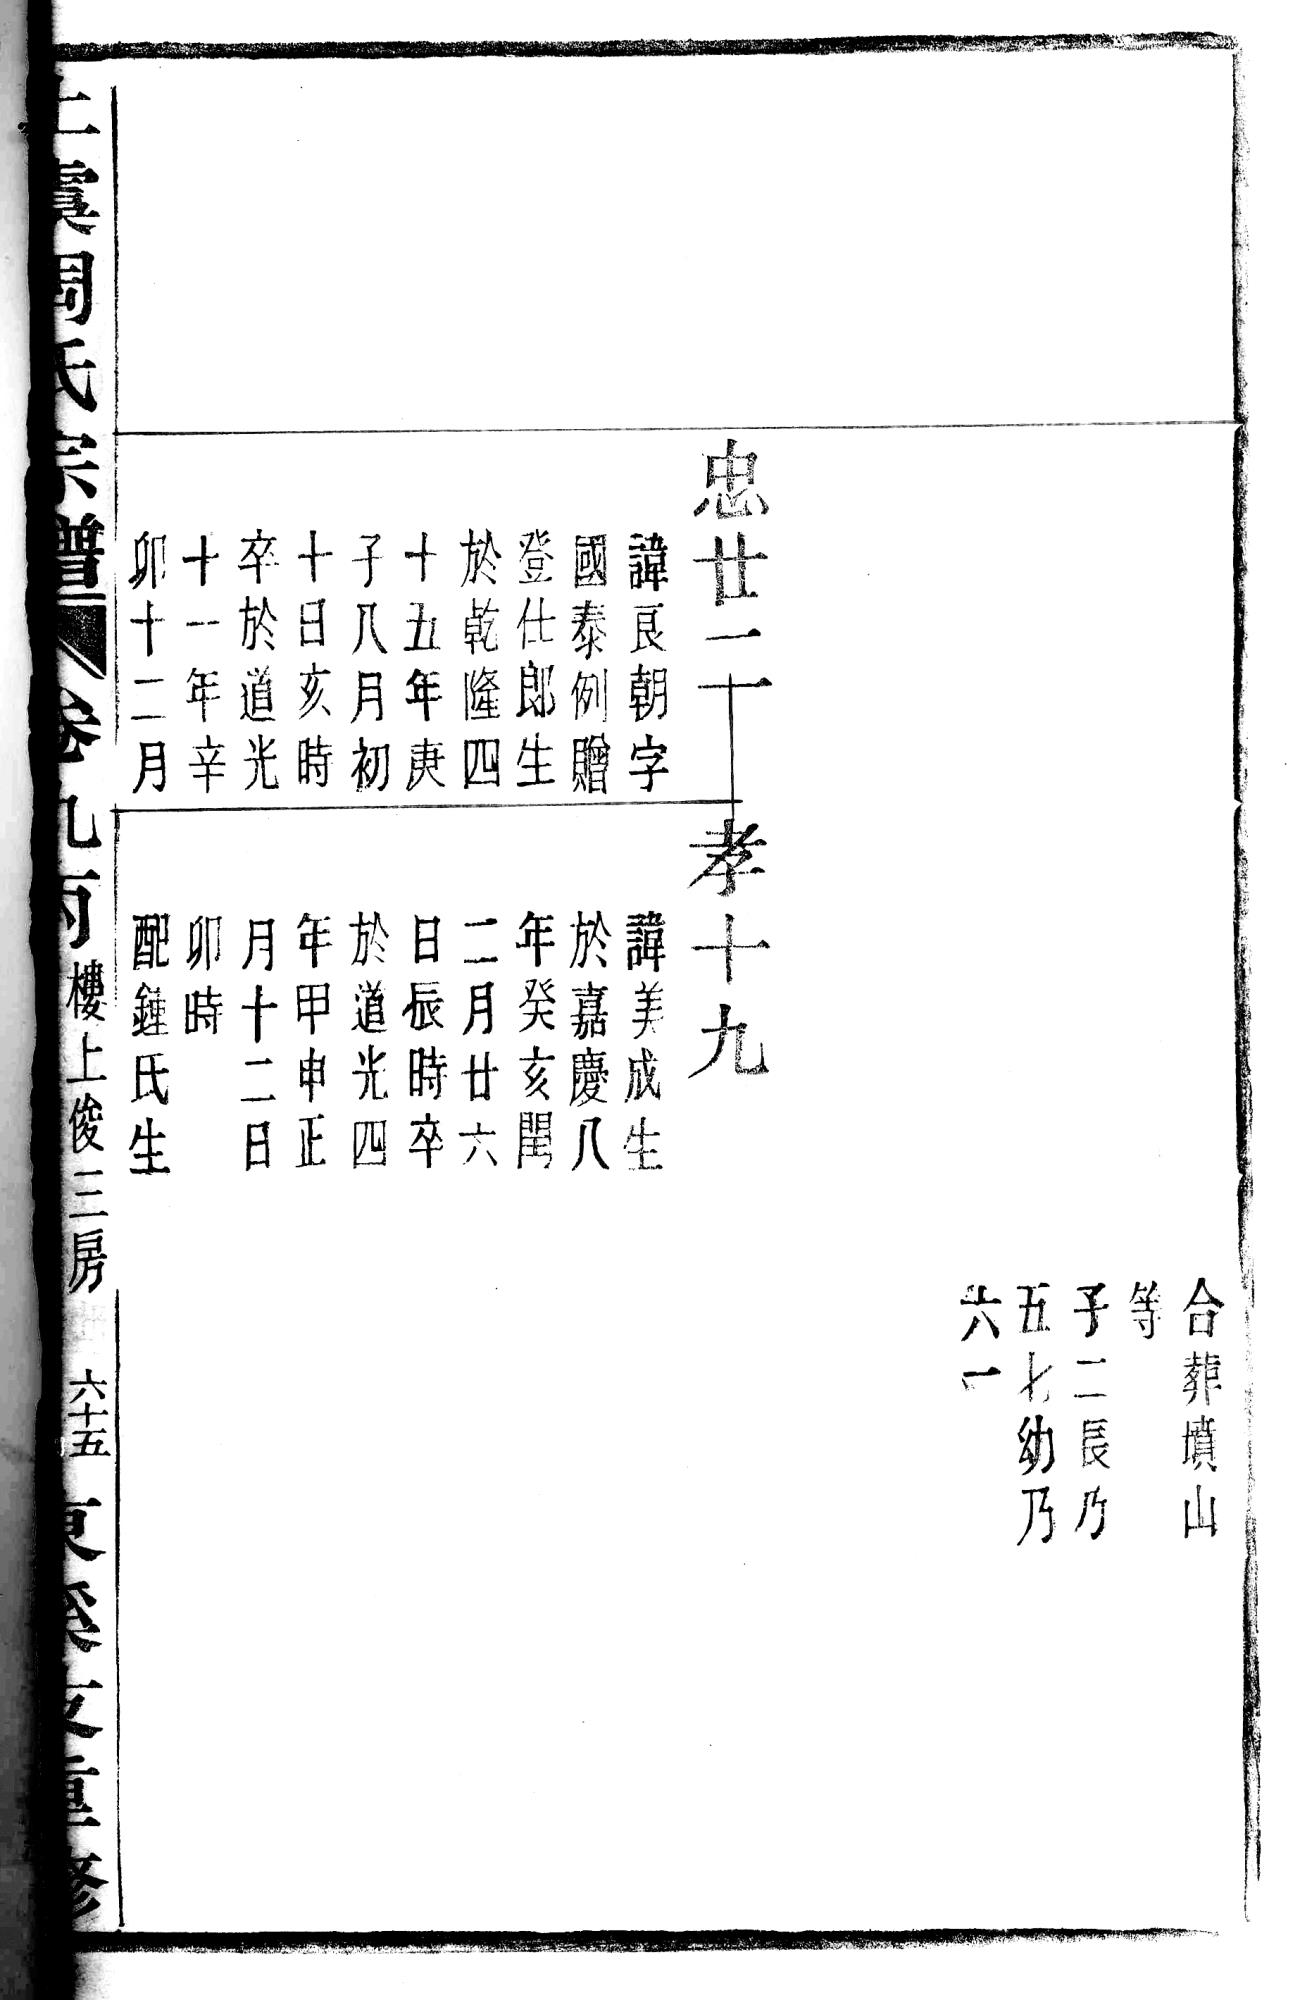 合葬墳山
等
子二長乃
五七幼乃
六一
忠廿二
諱良朝字
國泰例贈
登仕郎生
於乾隆四
十五年庚
子八月初
十日亥時
卒於道光
十一年辛
卯十二月
孝十九
諱美成生
於嘉慶八
年癸亥閏
二月廿六
日辰時卒
於道光四
年甲申正
月十二日
卯時
配鍾氏生
上虞周氏宗譜
卷九丙
樓上俊三房
六十五
支重修